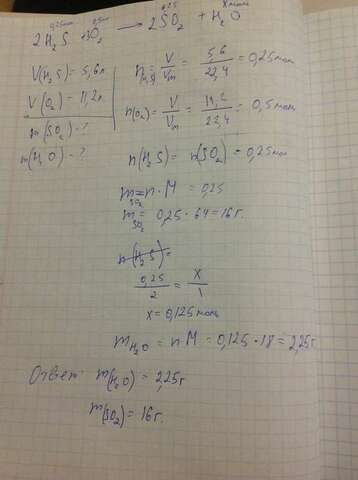 0,25моль 0,5моль 0,25 x моль
2H₂S + 3O₂ → 2SO₂ + H₂O
V(H₂S) = 5,6л
V(O₂) = 11,2л
m(SO₂) - ?
m(H₂O) - ?
n H₂S = V/Vm = 5,6/22,4 = 0,25моль
n(O₂) = V/Vm = 11,2/22,4 = 0,5моль
n(H₂S) = n(SO₂) = 0,25моль
m SO₂ = n · M = 0,25
m SO₂ = 0,25 · 64 = 16г.
n(H₂S) =
0,25/2 = x/1
x = 0,125моль
m H₂O = n M = 0,125 · 18 = 2,25г
Ответ: m(H₂O) = 2,25г
m(SO₂) = 16г.